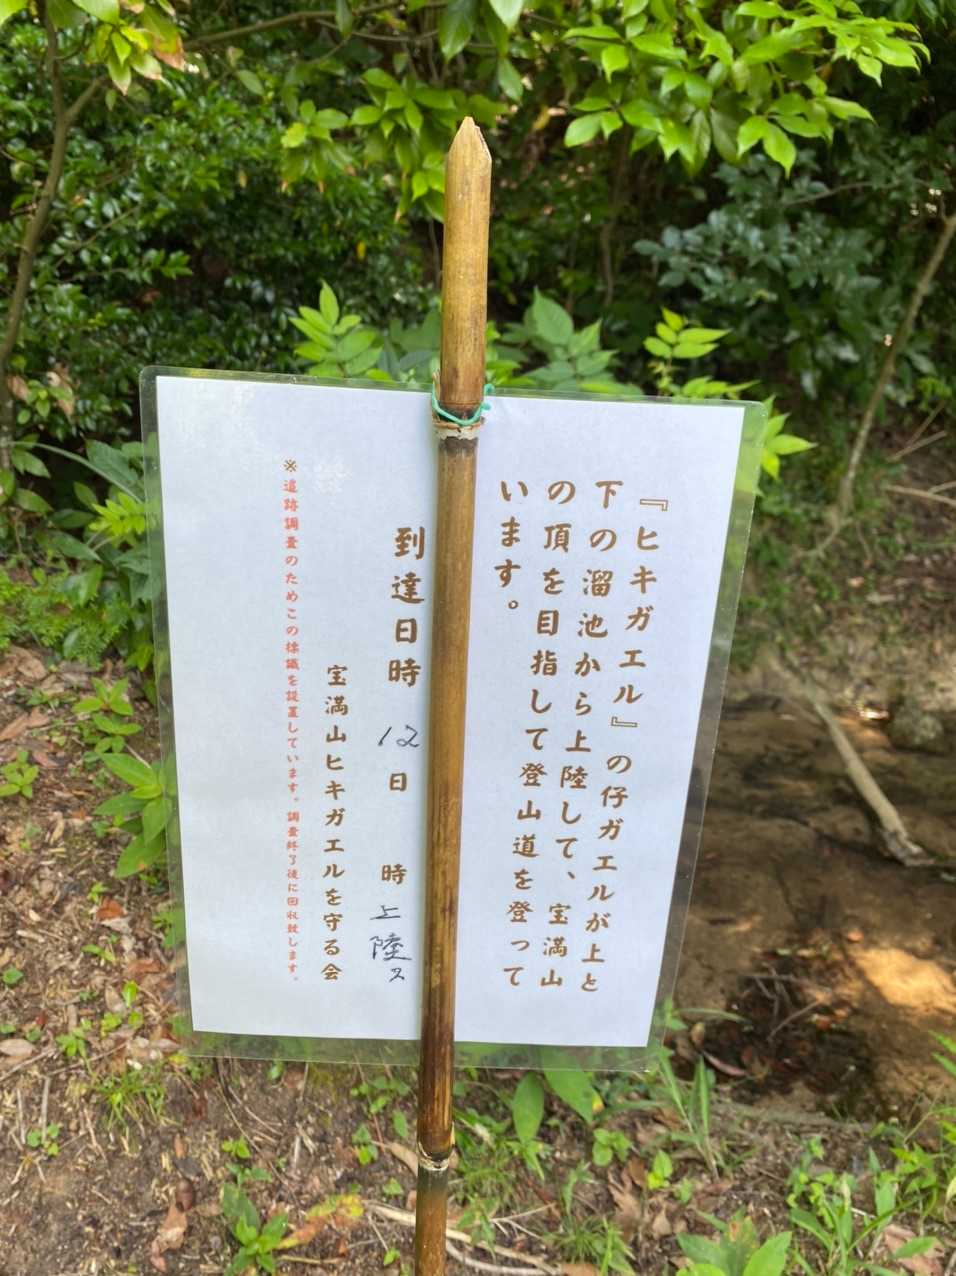 『ヒキガエル』の仔ガエルが上と
下の溜池から上陸して、宝満山
の頂を目指して登山道を登って
います。
到達日時 12日 時上陸ス
宝満山ヒキガエルを守る会
※追跡調査のためこの標識を設置しています。調査終了後に回収致します。